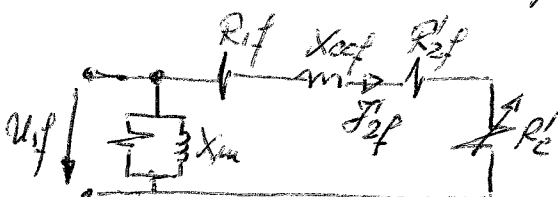 R1f Xccf R'2f
J'2f
U1f Xm R'c